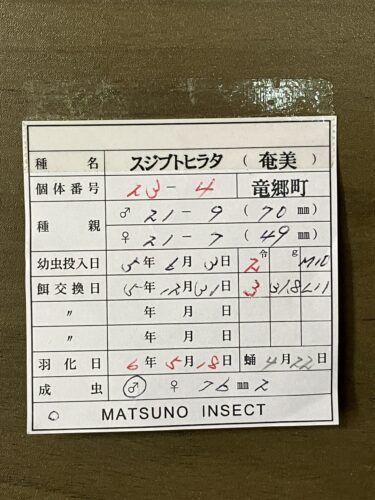 種名 スジブトヒラタ (奄美)
個体番号 23-4 竜郷町
種親 ♂ 21-9 (70mm)
♀ 21-7 (49mm)
幼虫投入日 5年6月3日 2令 g M10
餌交換日 5年12月31日 3 31.8 L11
〃 年 月 日
〃 年 月 日
羽化日 6年5月18日 蛹 4月22日
成虫 ♂ ♀ 76mm 2
MATSUNO INSECT